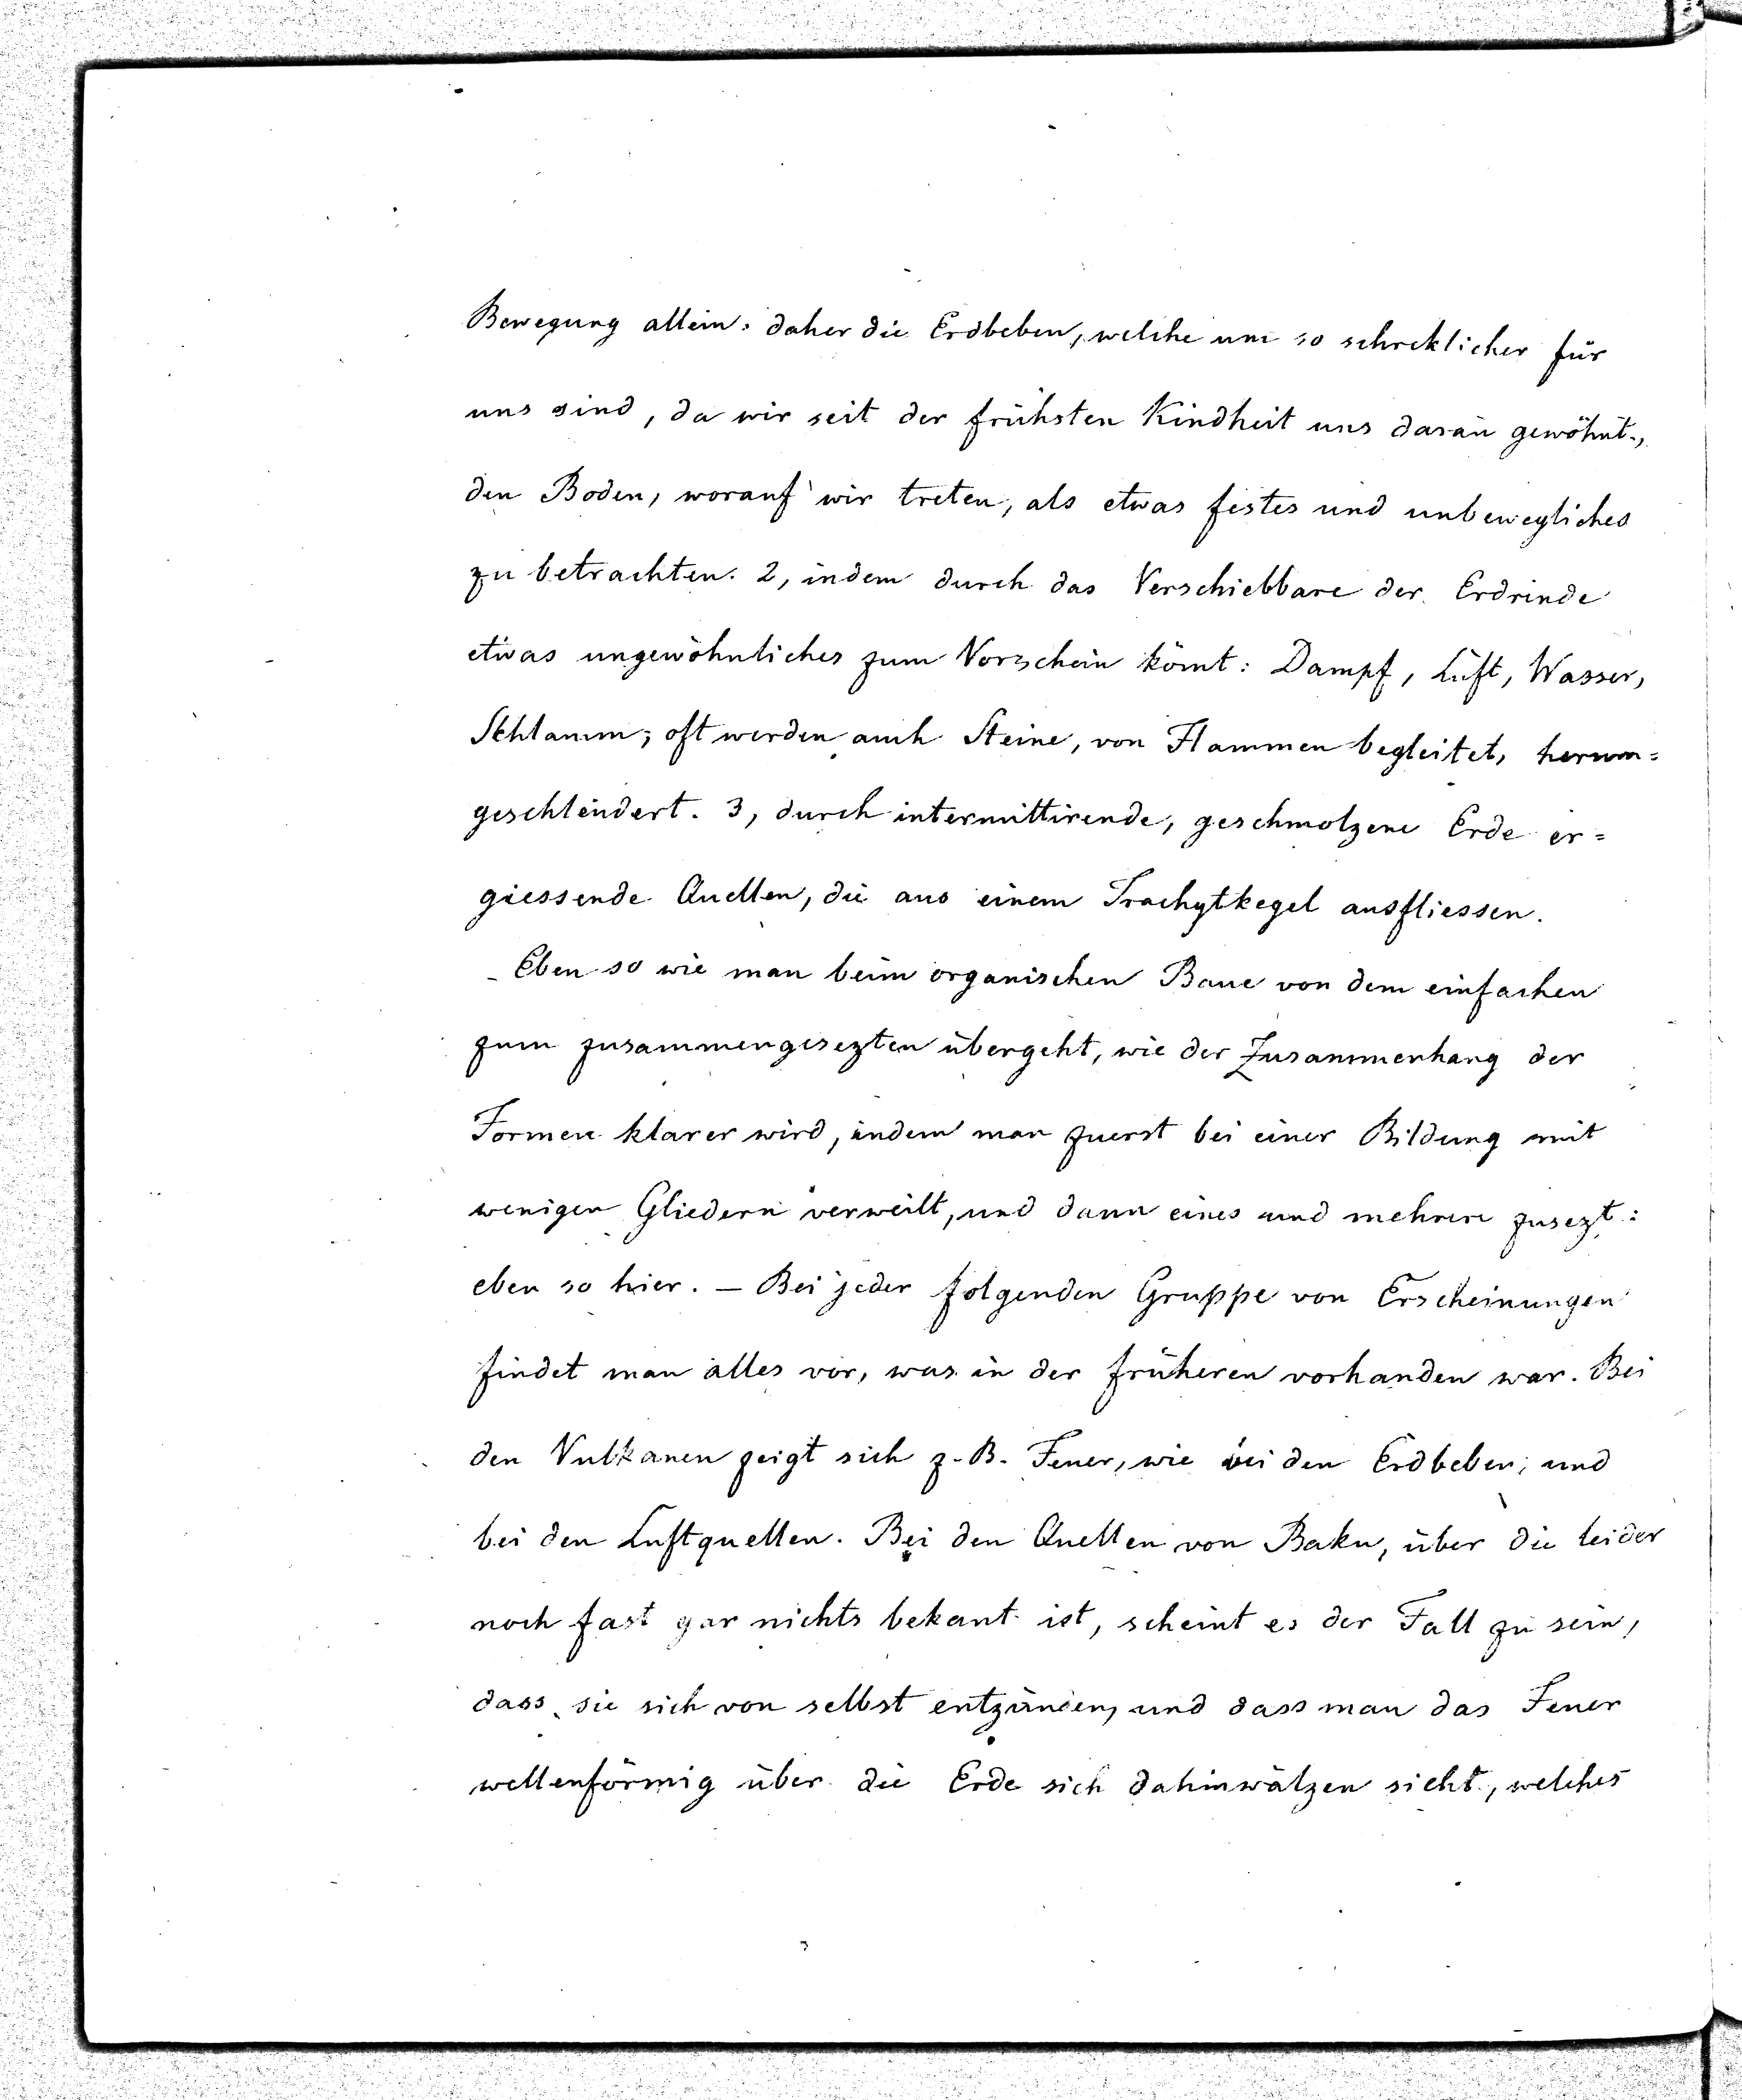 Bewegung allein: daher die Erdbeben, welche um so schreklicher für
uns sind, da wir seit der frühsten Kindheit uns daran gewöhnt,
den Boden, worauf wir treten, als etwas festes und unbewegliches
zu betrachten. 2, indem durch das Verschiebbare der Erdrinde
etwas ungewöhnliches zum Vorschein köm̅t: Dampf, Luft, Wasser,
Schlamm; oft werden auch Steine, von Flammen begleitet,
geschleudert. 3, durch intermittirende, geschmolzene Erde er=
giessende Quellen, die aus einem Trachytkegel ausfliessen.
Eben so wie man beim organischen Baue von dem einfachen
zum zusammengesezten übergeht, wie der Zusammenhang der
Formen klarer wird, indem man zuerst bei einer Bildung mit
wenigen Gliedern verweilt, und dann eines und mehrere zusezt:
eben so hier. — Bei jeder folgenden Gruppe von Erscheinungen
findet man alles vor, was in der früheren vorhanden war. Bei
den Vulkanen zeigt sich z. B. Feuer, wie bei den Erdbeben, und
bei den Luftquellen. Bei den Quellen von Baku, über die leider
noch fast gar nichts bekant ist, scheint es der Fall zu sein,
dass sie sich von selbst entzünden, und dass man das Feuer
wellenförmig über die Erde sich dahinwälzen sieht, welches